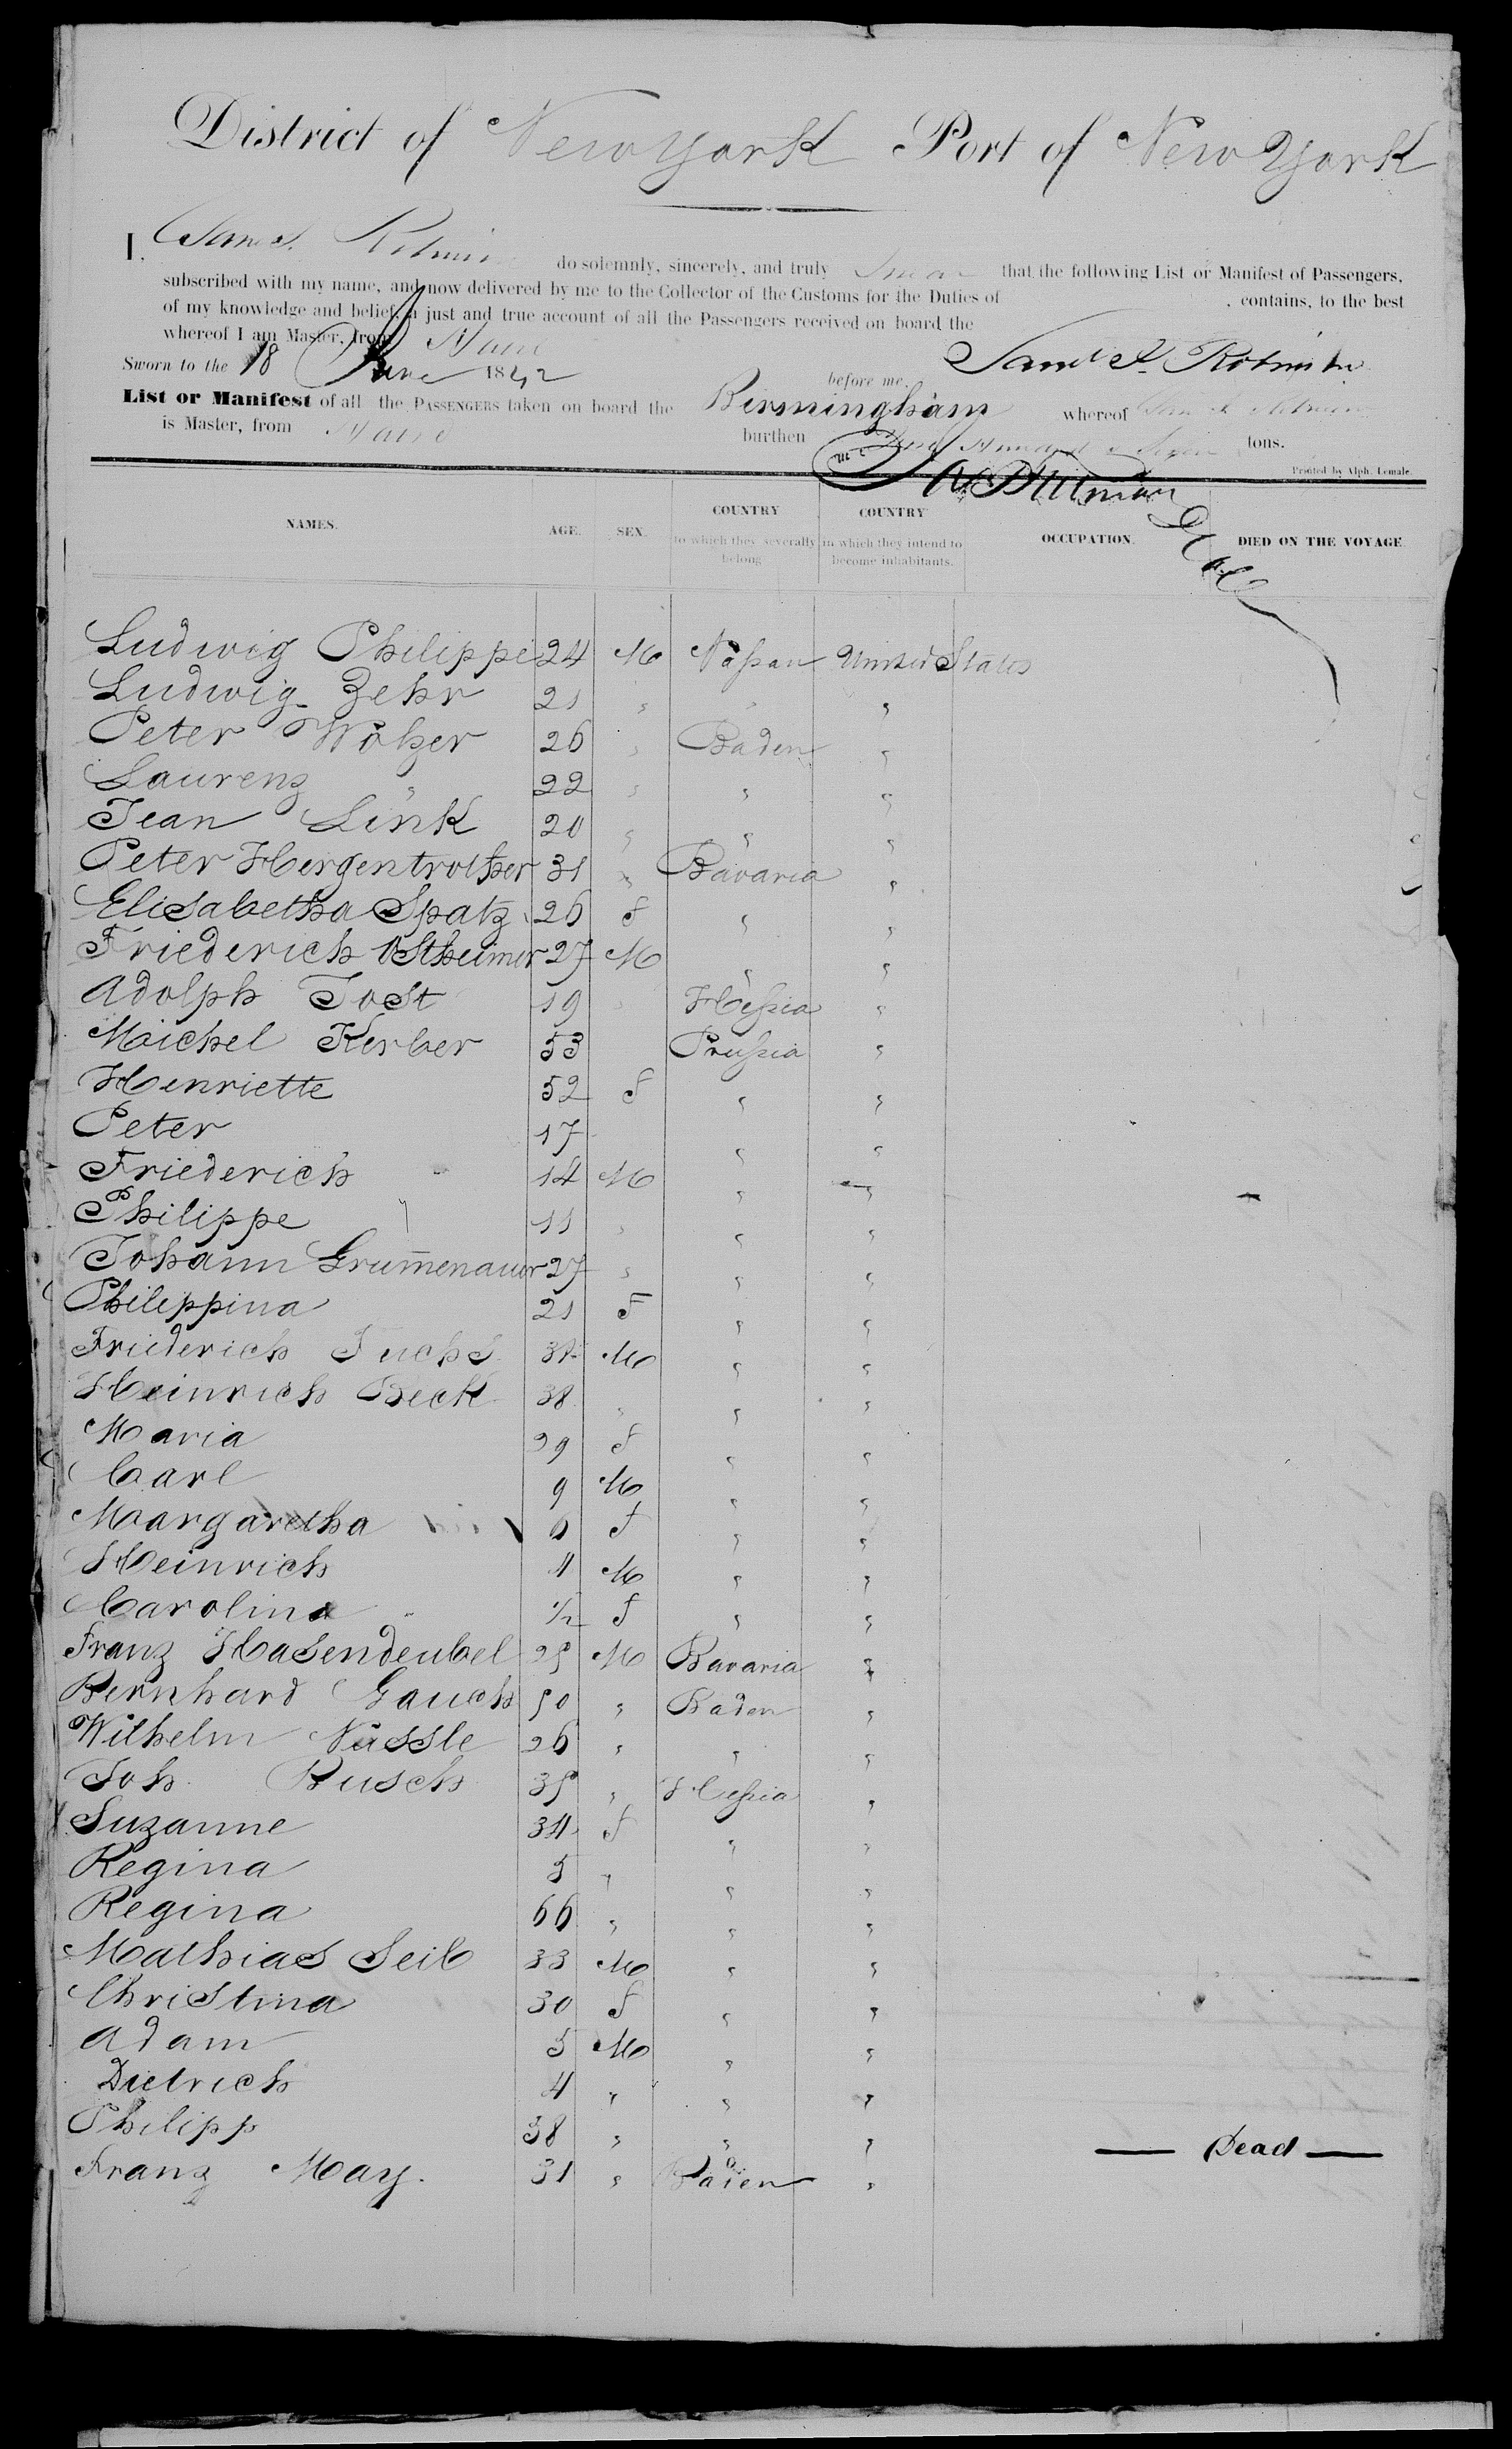 District of New York Port of New York
I, Sam. S. do solemnly, sincerely, and truly Swear that the following List or Manifest of Passengers,
subscribed with my name, and now delivered by me to the Collector of the Customs for the Duties of , contains, to the best
of my knowledge and belief, a just and true account of all the Passengers received on board the
whereof I am Master, from
Sworn to the 18 June 1842 before me.
List or Manifest of all the PASSENGERS taken on board the Birmingham whereof
is Master, from burthen Hundred & tons.
Printed by Alph. Lemale.
NAMES. AGE. SEX. COUNTRY to which they severally belong COUNTRY in which they intend to become inhabitants. OCCUPATION. DIED ON THE VOYAGE.
Ludwig Philippe 24 M Naſsau United States
Ludwig Zehr 21 " " "
Peter Wolzer 26 " Baden "
Laurenz " 22 " " "
Jean Link 20 " " "
Peter Hergentrother 31 " Bavaria "
Elisabetha Spatz 26 F " "
Friederich Ostheimer 27 M " "
Adolph Jost 19 " Heſsia "
Michel Kerber 53 Pruſsia "
Henriette 52 F " "
Peter 17 " "
Friederich 14 M " "
Philippe " 11 " " "
Johann Grum̄enauer 27 " " "
Philippina 21 F " "
Friederich Fuchs M " "
Heinrich Beck 38 " " "
Maria 29 F " "
Carl 9 M " "
Margaretha 6 F " "
Heinrich 4 M " "
Carolina 1/2 F " "
Franz Hasendeubel 25 M Bavaria "
Bernhard Gauch 50 " Baden "
Wilhelm Nüssle 26 " " "
Joh Busch 35 " Heſsia "
Suzanne 34 F " "
Regina 5 " " "
Regina 66 " " "
Mathias Seib 33 M " "
Christina 30 F " "
Adam 5 M " "
Dietrich 4 " " "
Philipp 38 " " " — Dead —
Franz May. 31 " Baden "